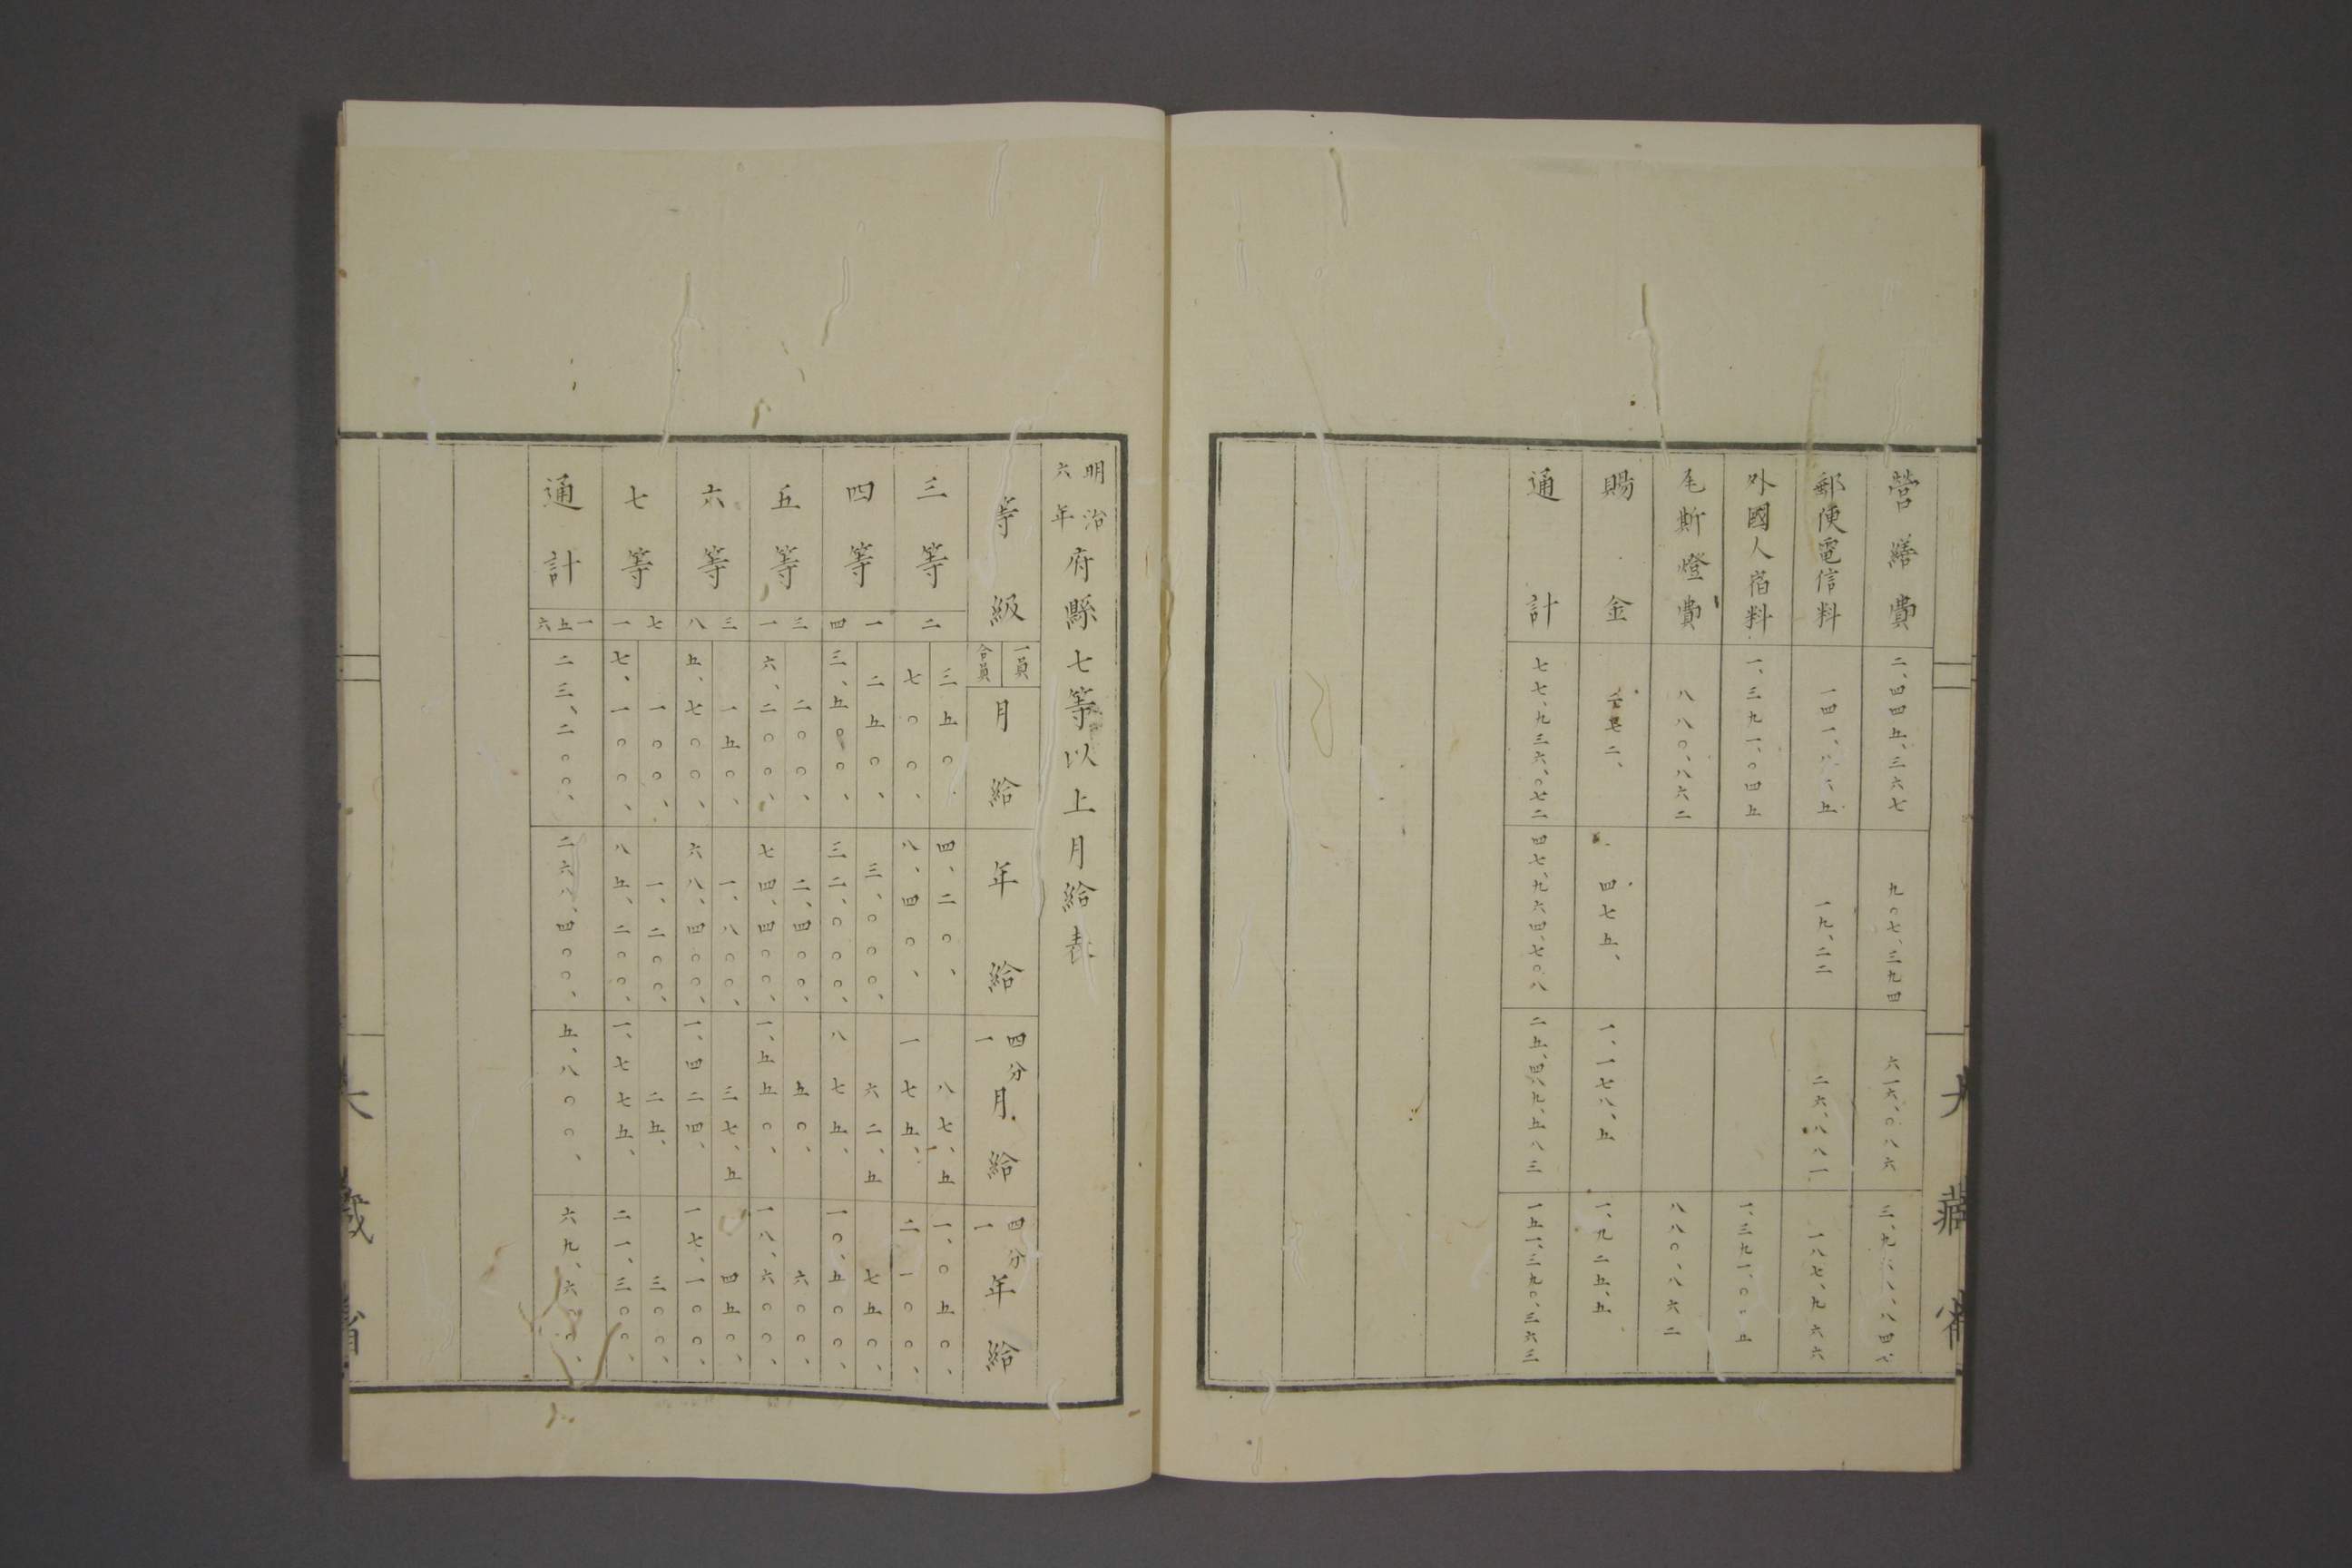 營繕費 二、四四五、三六七 九〇七、三九四 六一六、〇八六
郵便電信料 一九、二二 二六、八八一 一八七、九六六
外國人宿料 一、三九一、〇四五
瓦斯燈費 八八〇、八六二 八八〇、八六二
賜金 二、 四七五、 一、一七八、五 一、九二五、五
通計 七七、九三六、〇七二 四七、九六四、七〇八 二五、四八九、五八三 一五一、三九〇、三六三
大藏省
明治六年府縣七等以上月給表
等級 一員 合員 月給 年給 四分一月給 四分一年給
三等 二 三五〇、 四、二〇、 八七、五 一、〇五〇、
七〇〇、 八、四〇、 一七五、 二一〇〇、
四等 一四 二五〇、 三、〇〇〇、 六二、五 七五〇、
三、五〇〇、 三二、〇〇〇、 八七五、 一〇、五〇〇、
五等 三一 二〇〇、 二、四〇〇、 五〇、 六〇〇、
六、二〇〇、 七四、四〇〇、 一、五五〇、 一八、六〇〇、
六等 三八 一五〇、 一、八〇〇、 三七、五 四五〇、
五、七〇〇、 六八、四〇〇、 一、四二四、 一七、一〇〇、
七等 七一 一〇〇、 一、二〇〇、 二五、 三〇〇、
七、一〇〇、 八五、二〇〇、 一、七七五、 二一、三〇〇、
通計 一五六 二三、二〇〇、 二六八、四〇〇、 五、八〇〇、 六九、六